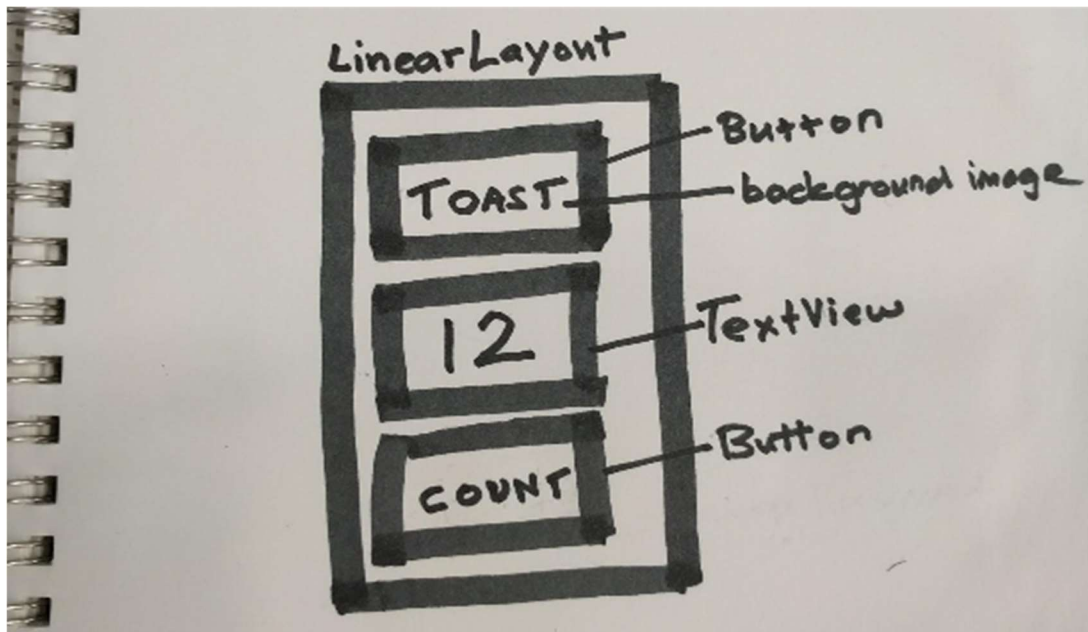 LinearLayout
Button
TOAST
background image
12
TextView
COUNT
Button